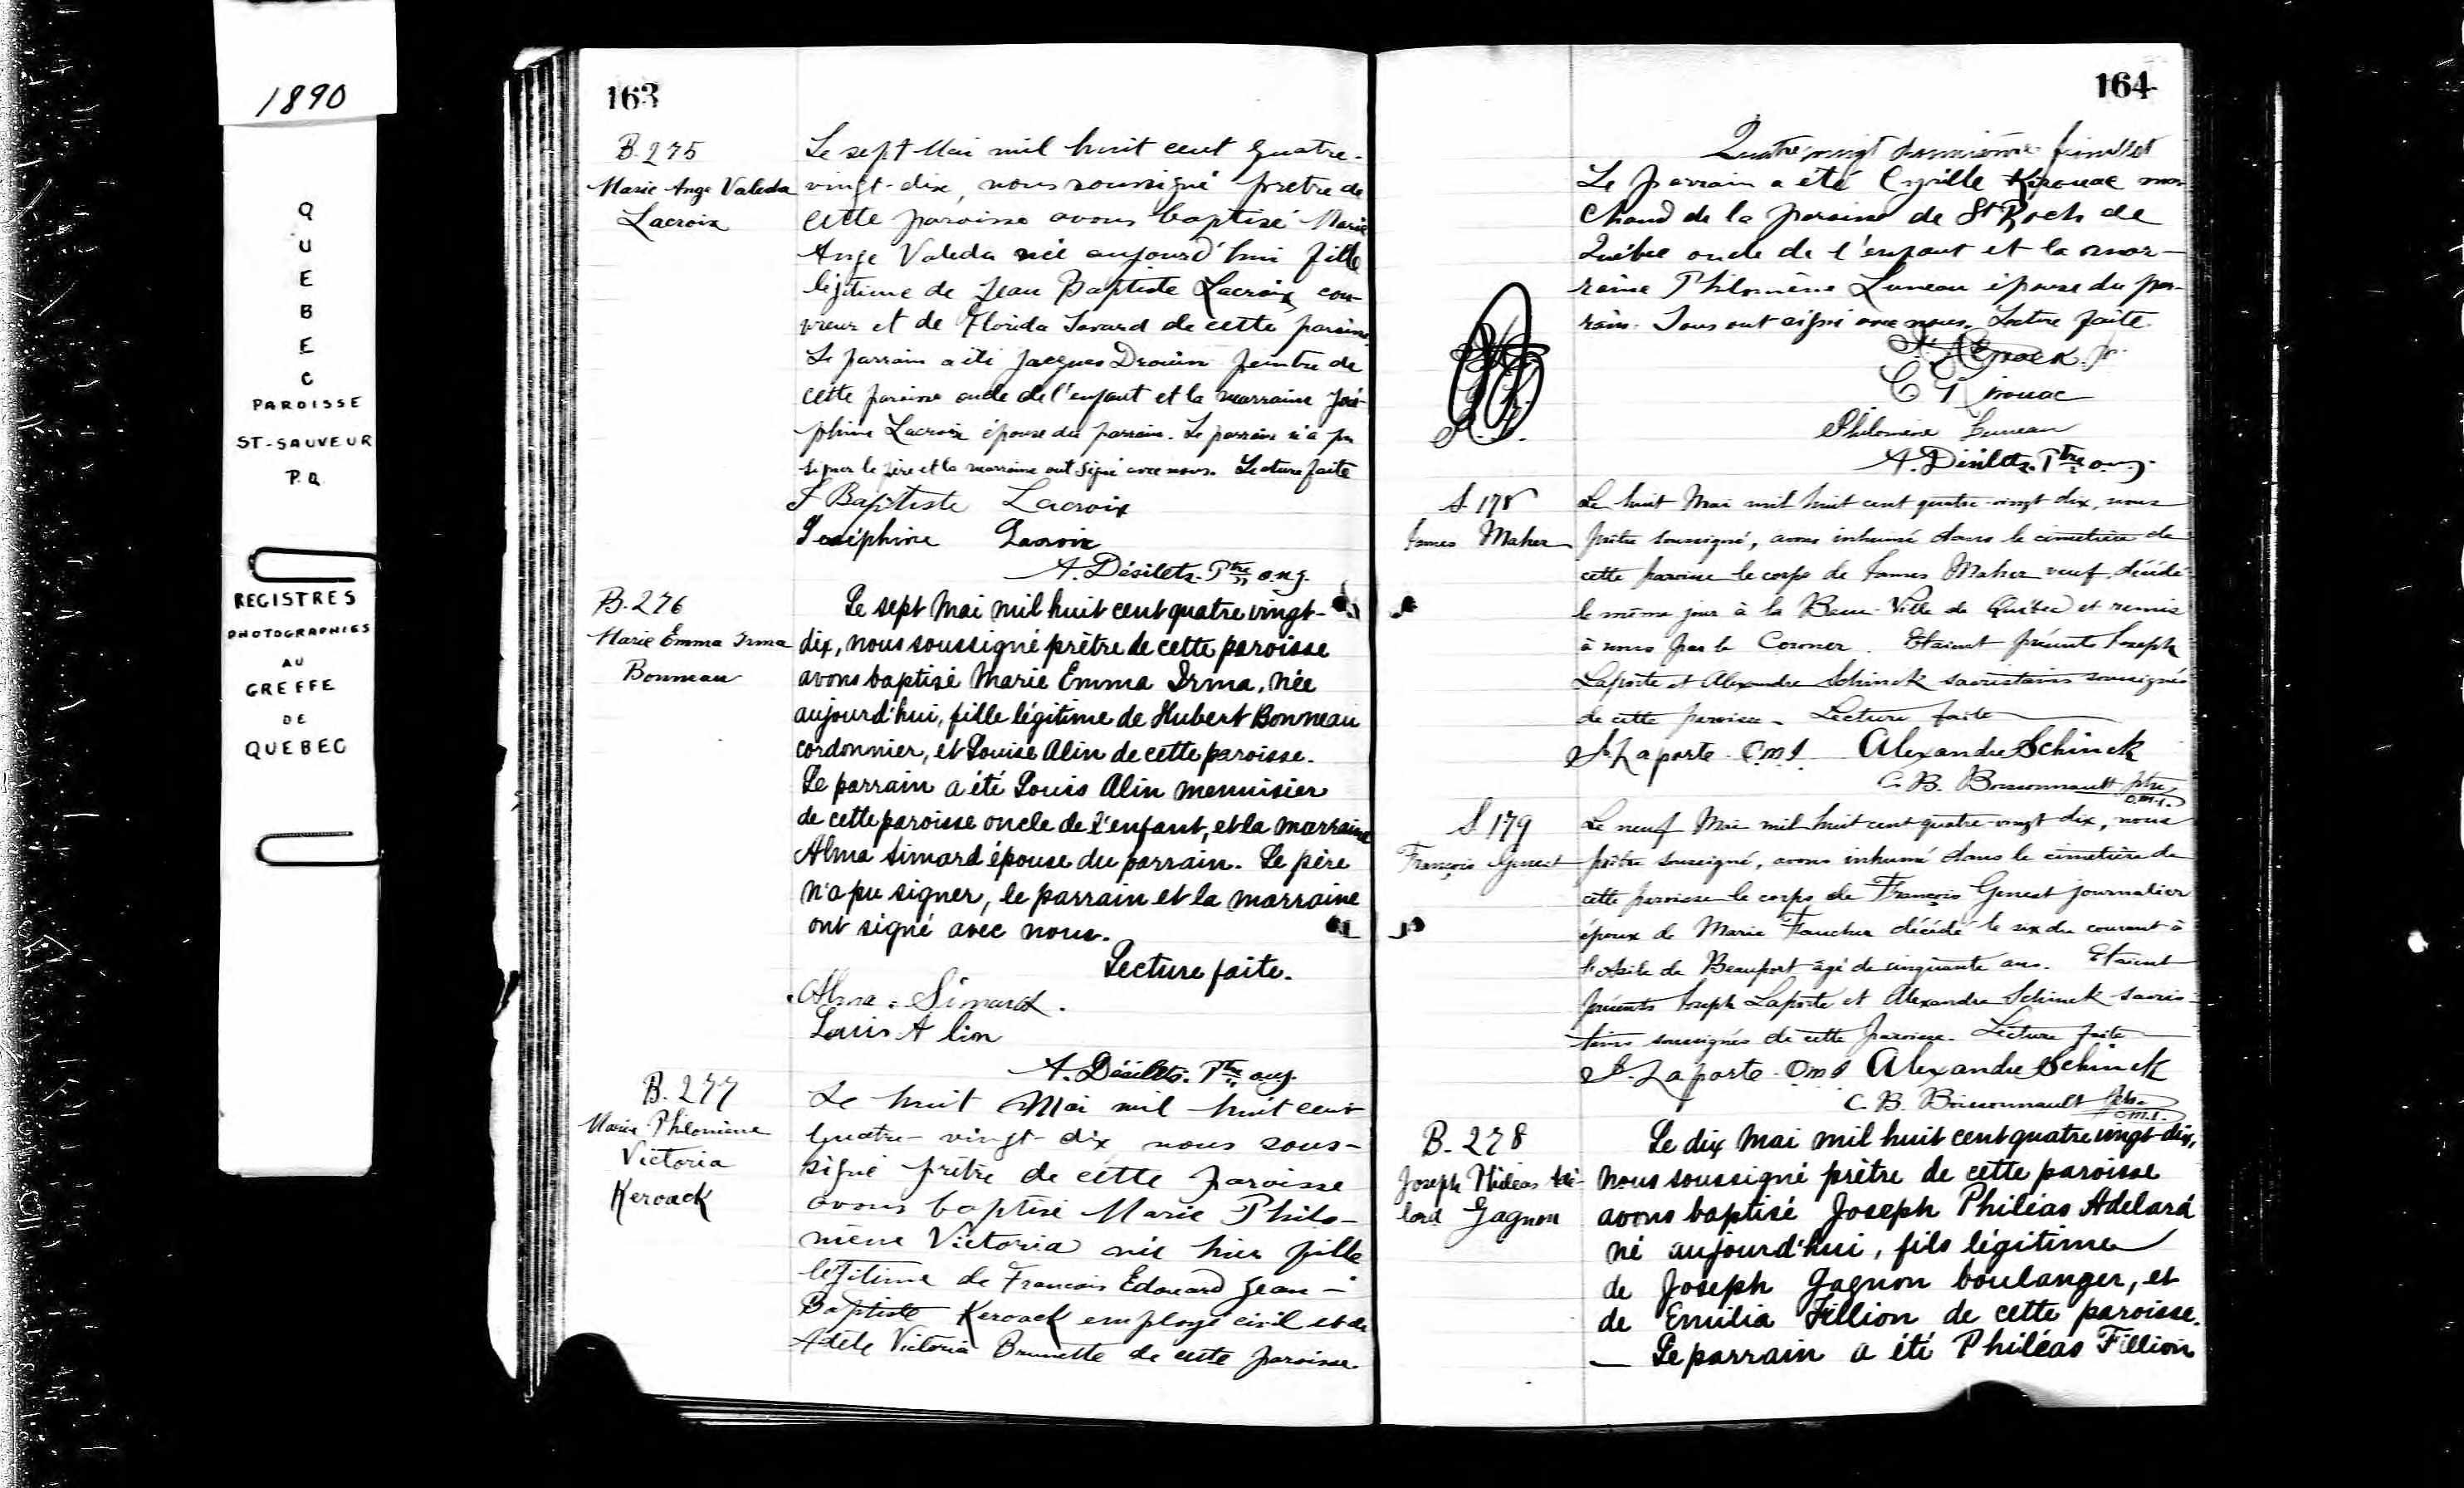 1890
QUEBEC
PAROISSE
ST-SAUVEUR
P.Q.
REGISTRES
PHOTOGRAPHIES
AU
GREFFE
DE
QUEBEC
163
B.275
Marie Ange Valeda
Lacroix
Le sept Mai mil huit cent quatre-
vingt-dix, nous soussigné prêtre de
cette paroisse avons baptisé Marie
Ange Valeda née aujourd'hui fille
légitime de Jean Baptiste Lacroix cou-
vreur et de Florida Savard de cette paroisse.
Le parrain a été Jacques Drouin peintre de
cette paroisse oncle de l'enfant et la marraine José-
phine Lacroix épouse du parrain. Le parrain n'a pu
signer le père et la marraine ont signé avec nous. Lecture faite
J Baptiste Lacroix
Joséphine Lacroix
A. Désilets. Ptre o.m.j.
B.276
Marie Emma Irma
Bonneau
Le sept Mai mil huit cent quatre vingt-
dix, nous soussigné prêtre de cette paroisse
avons baptisé Marie Emma Irma, née
aujourd'hui, fille légitime de Hubert Bonneau
cordonnier, et Louise Alin de cette paroisse.
Le parrain a été Louis Alin menuisier
de cette paroisse oncle de l'enfant, et la marraine
Alma Simard épouse du parrain. Le père
n'a pu signer, le parrain et la marraine
ont signé avec nous.
Lecture faite.
Alma Simard.
Louis A lin
A. Désilets. Ptre
B.277
Marie Philomène
Victoria
Keroack
Le huit Mai mil huit cent
quatre-vingt-dix nous sous-
signé prêtre de cette paroisse
avons baptisé Marie Philo-
mène Victoria née hier fille
légitime de Francois Edouard Jean-
Baptiste Keroack employé civil et de
Adèle Victoria Brunette de cette paroisse
164
Quatre-vingt feuillet
Le parrain a été Cyrille Kirouac mar-
chand de la paroisse de St Roch de
Québec oncle de l'enfant et la mar-
raine Philomène Luneau épouse du par-
rain. Tous ont signé avec nous. Lecture faite.
C Kirouac
Philomène Luneau
A. Désilets. Ptre
S 178
James Maher
Le huit Mai mil huit cent quatre-vingt dix, nous
prêtre soussigné, avons inhumé dans le cimetière de
cette paroisse le corps de James Maher veuf, décédé
le même jour à la Ville de Québec et remis
à nous par le Coroner. Etaient présents Joseph
Laporte et Alexandre Schinck sacristains soussignés
de cette paroisse. Lecture faite
J. Laporte O.M.I. Alexandre Schinck
C. B. Boissonnault ptre
o.m.i.
S 179
François Genest
Le neuf Mai mil huit cent quatre-vingt dix, nous
prêtre soussigné, avons inhumé dans le cimetière de
cette paroisse le corps de François Genest journalier
époux de Marie Faucher décédé le six du courant à
l'Asile de Beauport agé de cinquante ans. Etaient
présents Joseph Laporte et Alexandre Schinck sacris-
tains soussignés de cette paroisse. Lecture faite
J. Laporte O.M.I Alexandre Schinck
C. B. Boissonnault ptre
o.m.i.
B.278
Joseph Philéas Adé-
lard Gagnon
Le dix Mai mil huit cent quatre vingt-dix,
nous soussigné prêtre de cette paroisse
avons baptisé Joseph Philéas Adelard
né aujourd'hui, fils légitime
de Joseph Gagnon boulanger, et
de Emilia Fillion de cette paroisse.
— Le parrain a été Philéas Fillion